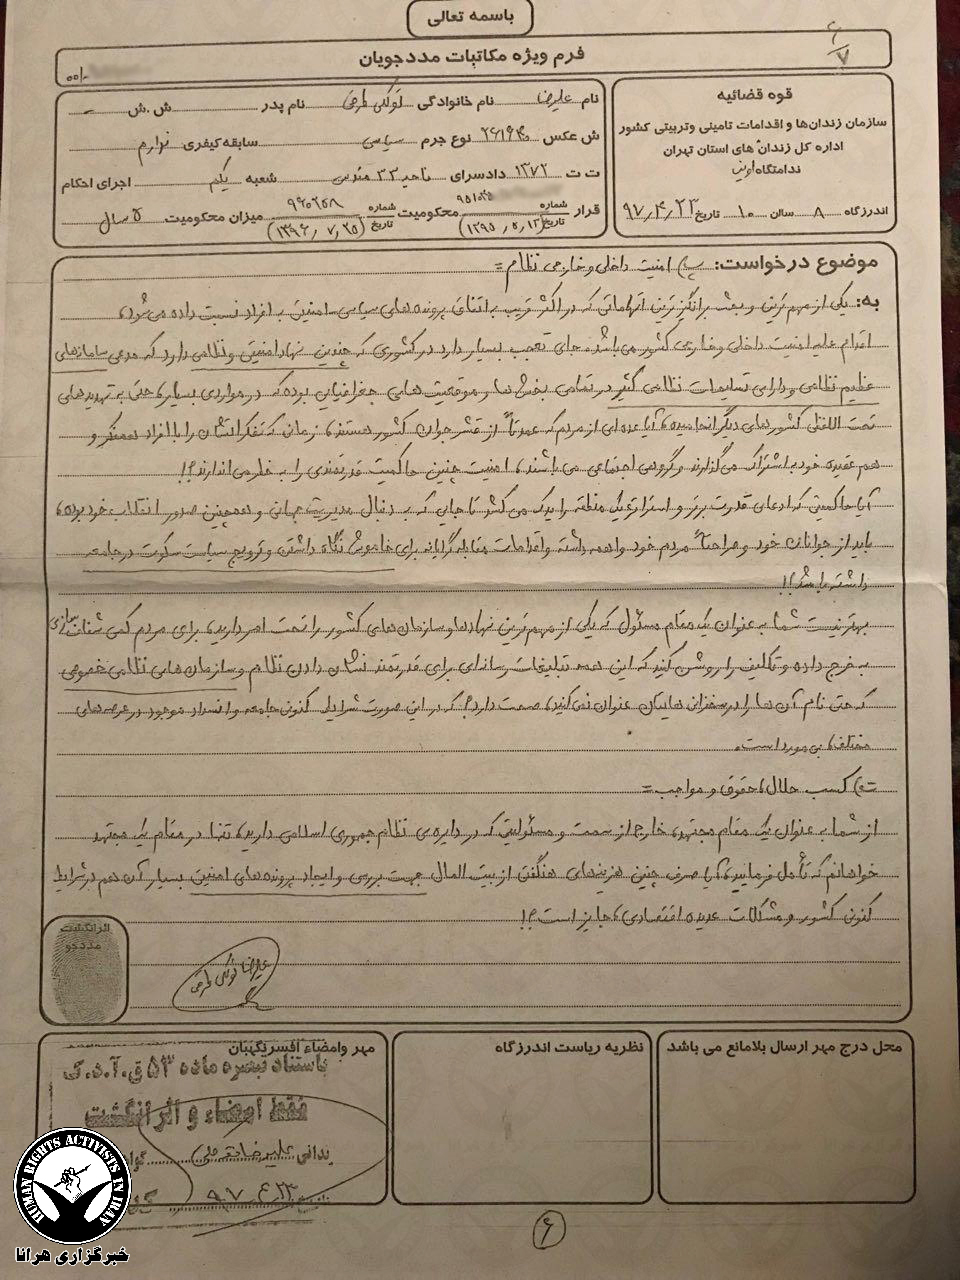 باسمه تعالی
۶/۷
فرم ویژه مکاتبات مددجویان
قوه قضائیه
سازمان زندان‌ها و اقدامات تامینی وتربیتی کشور
اداره کل زندان های استان تهران
ندامتگاه اوین
اندرزگاه ۸ سالن ۱۰ تاریخ ۹۷٫۴٫۲۳
نام علیرضا نام خانوادگی توکلی طرقی نام پدر ش.ش -
ش عکس نوع جرم سیاسی سابقه کیفری ندارم
ت ت ۱۳۷۲ دادسرای ناحیه ۳۳ مقدس شعبه یکم اجرای احکام
قرار شماره تاریخ محکومیت شماره تاریخ میزان محکومیت ۵ سال
موضوع درخواست: پ) امنیت داخلی و خارجی نظام =
به: یکی از مهم ترین و بحث برانگیزترین اتهاماتی که در اکثر قریب به اتفاق پرونده های سیاسی امنیتی به افراد نسبت داده می شود،
اقدام علیه امنیت داخلی و خارجی کشور می باشد. جای تعجب بسیار دارد در کشوری که چندین نهاد امنیتی و نظامی دارد که مدعی سامانه های
عظیم نظامی و دارای تسلیحات نظامی کثیر در تمامی بخش ها و موقعیت های جغرافیایی بوده که در مواردی بسیار، حتی به تهدیدهای
تحت اللفظی کشورهای دیگر انجامیده، آیا عده ای از مردم که عمدتاً از قشر جوان کشور هستند، زمانی که تفکراتشان را با افراد همفکر و
هم عقیده خود به اشتراک می گذارند و گروهی اجتماعی می باشند، امنیت چنین حاکمیت قدرتمندی را به خطر می اندازند؟!
آیا حاکمیتی که ادعای قدرت برتر و استراتژیک منطقه را یدک می کشد تا جایی که به دنبال مدیریت جهانی و همچنین صدور انقلاب خود بوده،
باید از جوانان خود و صراحتاً مردم خود واهمه داشته و اقدامات مقابله گرایانه برای خاموش نگاه داشتن و ترویج سیاست سکوت در جامعه
داشته باشد؟!
بهتر نیست شما به عنوان یک مقام مسئول که یکی از مهم ترین نهادها و سازمان های کشور را تحت امر دارید، برای مردم کمی شفاف سازی
به خرج داده و تکلیف را روشن کنید که این همه تبلیغات رسانه ای برای قدرتمند نشان دادن نظام و سازمان های نظامی خصوصی
که حتی نام آن ها را در سخنرانی هایتان عنوان نمی کنید، صحت دارد؟ که در این صورت شرایط کنونی جامعه و انسداد موجود در عرصه های
مختلف، بی مورد است.
ت) کسب حلال، حقوق و مواجب =
از شما به عنوان یک مقام مجتهد، خارج از سمت و مسئولیتی که در دایره ی نظام جمهوری اسلامی دارید، تنها در مقام یک مجتهد
خواهانم که تأمل فرمایید، آیا صرف چنین هزینه های هنگفتی از بیت المال جهت بررسی و ایجاد پرونده های امنیتی بسیار آن هم در شرایط
کنونی کشور و مشکلات عدیده اقتصادی، جایز است؟!
اثرانگشت
مددجو
علیرضا توکلی طرقی
محل درج مهر ارسال بلامانع می باشد
نظریه ریاست اندرزگاه
مهر وامضاء افسرنگهبان
باستناد تبصره ماده ۵۳ ق.آ.د.ک
فقط امضاء و اثر انگشت
علیرضا
۹۷٫۴٫۲۳
۶
HUMAN RIGHTS ACTIVISTS IN IRAN
خبرگزاری هرانا